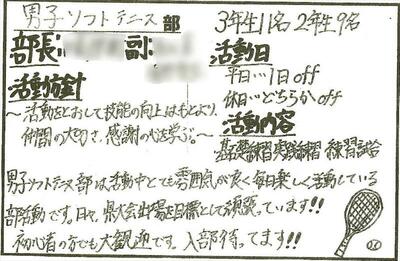 男子ソフトテニス部
3年生11名 2年生9名
部長: 副:
活動方針
〜活動をとおして技能の向上はもとより、
仲間の大切さ、感謝の心を学ぶ。〜
活動日
平日…1日off
休日…どちらかoff
活動内容
基礎練習 実践練習 練習試合
男子ソフトテニス部は活動中とても雰囲気が良く毎日楽しく活動している
部活動です。日々、県大会出場を目標として頑張っています!!
初心者の方でも大歓迎です。入部待ってます!!